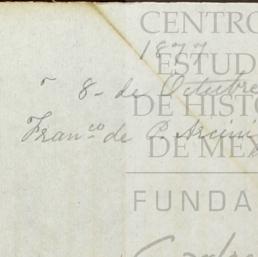 CENTRO
1877
ESTUD
8- de Octubre
DE HISTO
Fran.co de P.
DE MEX
FUNDA